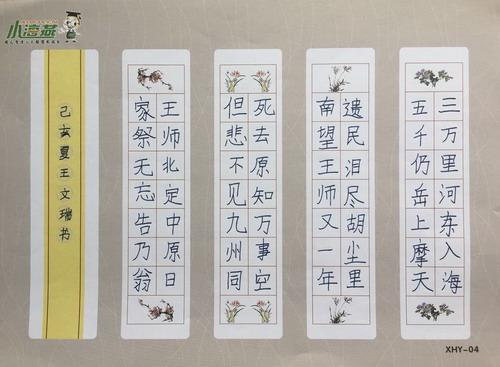 三万里河东入海
五千仍岳上摩天
遗民泪尽胡尘里
南望王师又一年
死去原知万事空
但悲不见九州同
王师北定中原日
家祭无忘告乃翁
己亥夏王文瑞书
XHY-04